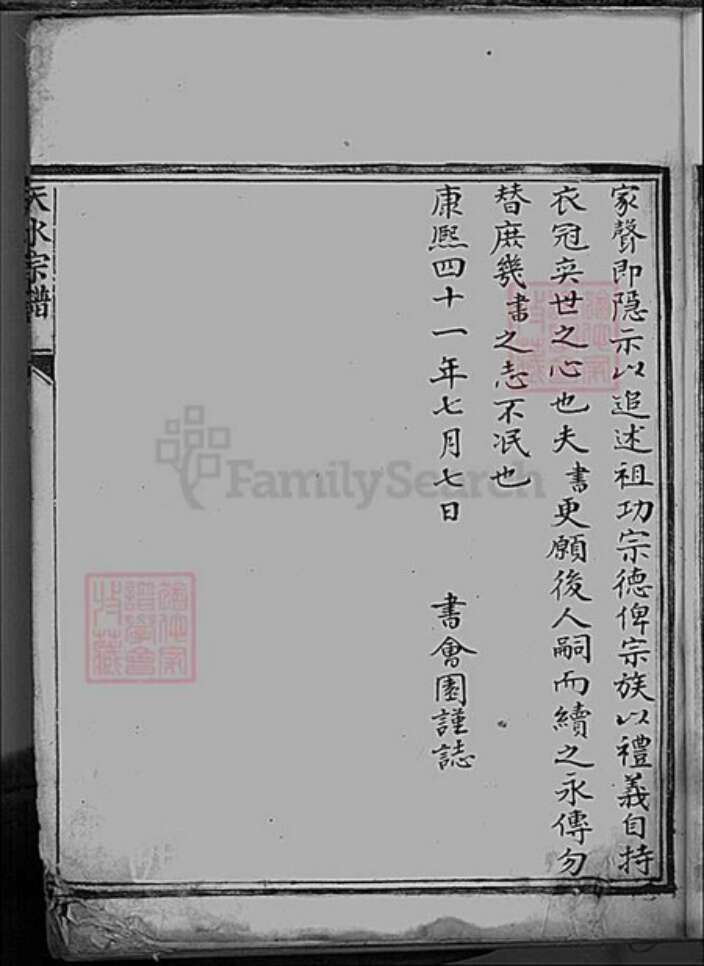 家聲即隱示以追述祖功宗德俾宗族以禮義自持
衣冠奕世之心也夫書更願後人嗣而續之永傳勿
替庶幾書之志不泯也
康熙四十一年七月七日 書會園謹誌
天水宗譜
FamilySearch